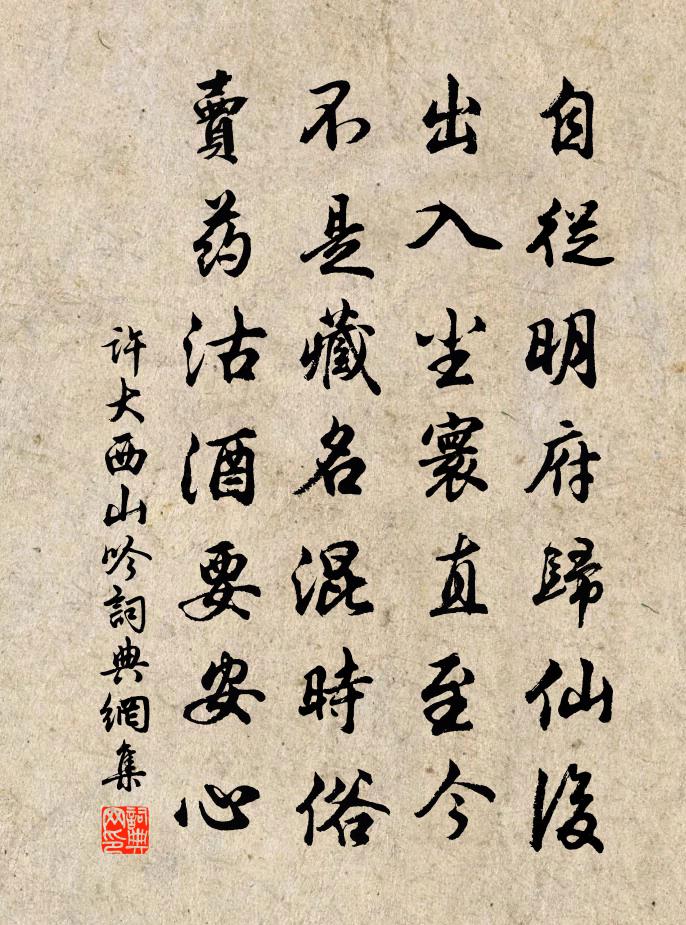 自從明府歸仙後
出入尘寰直至今
不是藏名混時俗
賣药沽酒要安心
許大西山吟詞典網集
詞典网印